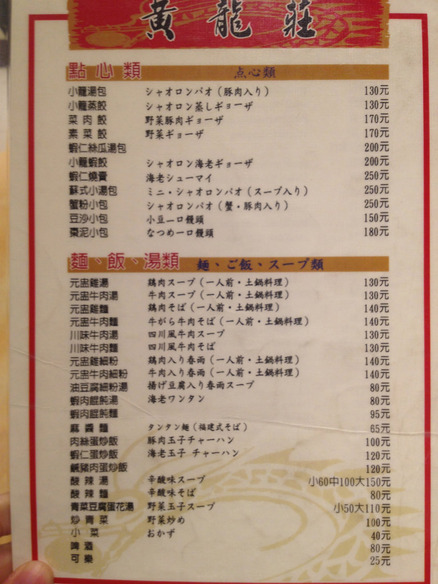 黃龍莊
點心類 点心類
小龍湯包 シャオロンパオ(豚肉入り) 130元
小龍蒸餃 シャオロン蒸しギョーザ 130元
菜肉餃 野菜豚肉ギョーザ 170元
素菜餃 野菜ギョーザ 170元
蝦仁絲瓜湯包 200元
小龍蝦餃 シャオロン海老ギョーザ 200元
蝦仁燒賣 海老シューマイ 250元
蘇式小湯包 ミニ・シャオロンパオ(スープ入り) 250元
蟹粉小包 シャオロンパオ(蟹・豚肉入り) 250元
豆沙小包 小豆一口饅頭 150元
棗泥小包 なつめ一口饅頭 180元
麵、飯、湯類 麺、ご飯、スープ類
元盅雞湯 鶏肉スープ(一人前・土鍋料理) 130元
元盅牛肉湯 牛肉スープ(一人前・土鍋料理) 130元
元盅雞麵 鶏肉そば(一人前・土鍋料理) 140元
元盅牛肉麵 牛がら牛肉そば(一人前・土鍋料理) 140元
川味牛肉湯 四川風牛肉スープ 130元
川味牛肉麵 四川風牛肉そば 140元
元盅雞細粉 鶏肉入り春雨(一人前・土鍋料理) 140元
元盅牛肉細粉 牛肉入り春雨(一人前・土鍋料理) 140元
油豆腐細粉湯 揚げ豆腐入り春雨スープ 80元
蝦肉餛飩湯 海老ワンタン 80元
蝦肉餛飩麵 95元
麻醬麵 タンタン麺(福建式そば) 65元
肉絲蛋炒飯 豚肉玉子チャーハン 100元
蝦仁蛋炒飯 海老玉子 チャーハン 120元
鹹豬肉蛋炒飯 120元
酸辣湯 辛酸味スープ 小60中100大150元
酸辣麵 辛酸味そば 80元
青菜豆腐蛋花湯 野菜玉子スープ 小50大110元
炒青菜 野菜炒め 100元
小菜 おかず 40元
啤酒 80元
可樂 25元